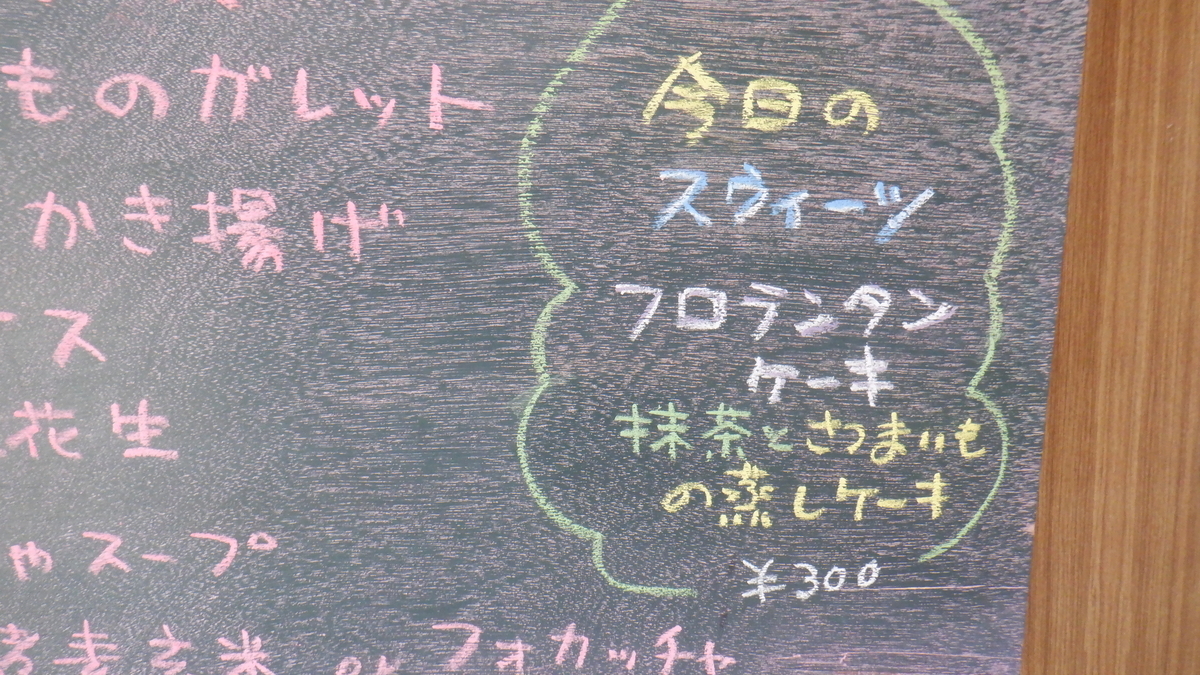 ものガレット
かき揚げ
ス
花生
スープ
玄米 or フォカッチャ
今日の
スウィーツ
フロランタン
ケーキ
抹茶とさつまいも
の蒸しケーキ
¥300